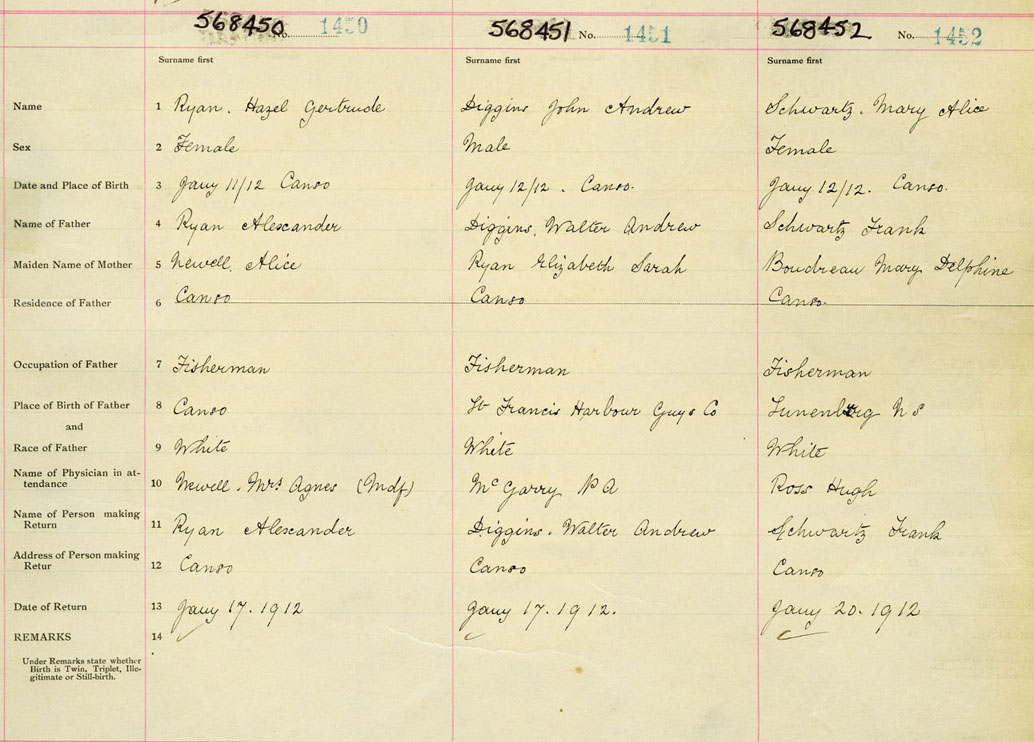 568450 No. 1450 568451 No. 1451 568452 No. 1452
Surname first Surname first Surname first
Name 1 Ryan. Hazel Gertrude Diggins John Andrew Schwartz. Mary Alice
Sex 2 Female Male Female
Date and Place of Birth 3 Jany 11/12 Canso Jany 12/12. Canso. Jany 12/12. Canso.
Name of Father 4 Ryan Alexander Diggins, Walter Andrew Schwartz Frank
Maiden Name of Mother 5 Newell, Alice Ryan Elizabeth Sarah Boudreau Mary Delphine
Residence of Father 6 Canso Canso Canso.
Occupation of Father 7 Fisherman Fisherman Fisherman
Place of Birth of Father 8 Canso St Francis Harbour Guys Co Lunenburg N S
and
Race of Father 9 White White White
Name of Physician in at-
tendance 10 Newell. Mrs Agnes (Mdf) McGarry P A Ross Hugh
Name of Person making
Return 11 Ryan Alexander Diggins. Walter Andrew Schwartz Frank
Address of Person making
Retur 12 Canso Canso Canso
Date of Return 13 Jany 17. 1912 Jany 17. 1912. Jany 20. 1912
REMARKS 14
Under Remarks state whether
Birth is Twin, Triplet, Ille-
gitimate or Still-birth.